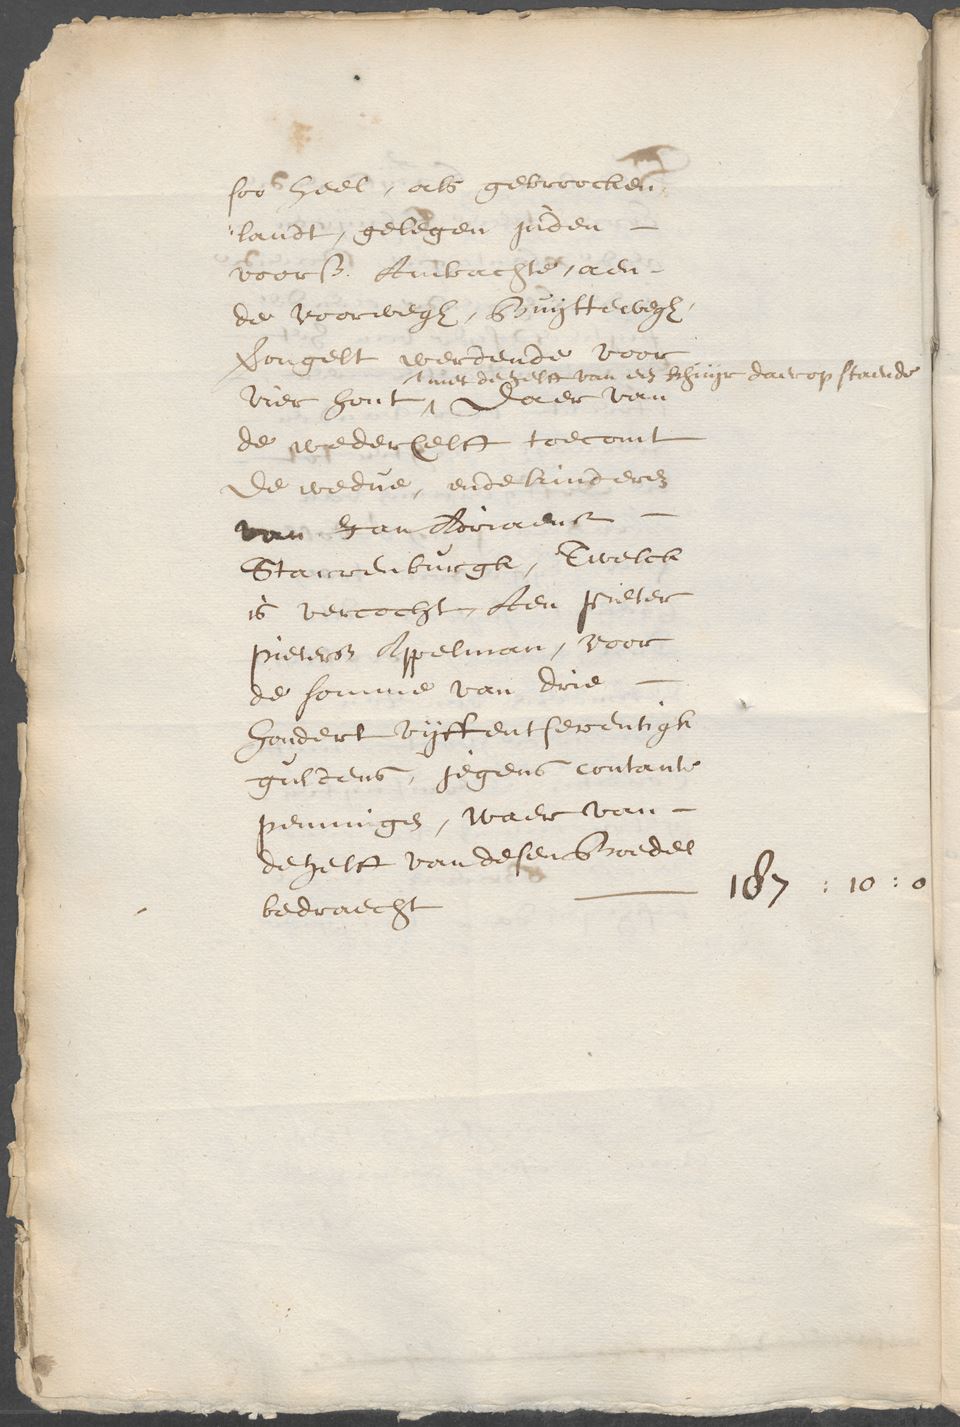 soo heel, als gebroocken
landt, gelegen inden -
voorsz. Ambachte, aen -
de voorwegh, Buijttewegh,
Rongelt werdende voor
^ met de helft van een schuijr daer op staende
vier hont ^ Daer van
de wederhelft toecomt
De weduwe, ende kinderen
van Jan Adriaensz -
Starrenburgh, Twelck
is vercocht, Aen pieter
pietersz Appelman, voor
de somme van drie -
hondert vijffentseventigh
guldens, jegens contante
penningen, waer van -
de helft van desen Boedel
bedraecht — 187 : 10 : 0